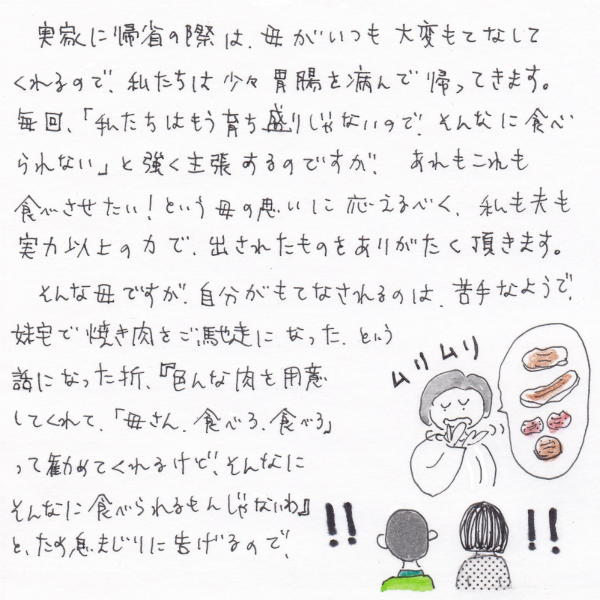 実家に帰省の際は、母がいつも大変もてなして
くれるので、私たちは少々胃腸を病んで帰ってきます。
毎回、「私たちはもう育ち盛りじゃないので、そんなに食べ
られない」と強く主張するのですが、あれもこれも
食べさせたい！という母の思いに応えるべく、私も夫も
実力以上の力で、出されたものをありがたく頂きます。
そんな母ですが、自分がもてなされるのは、苦手なようで、
妹宅で焼き肉をご馳走になった、という
話になった折、『色んな肉を用意
してくれて、「母さん、食べろ、食べろ」
って勧めてくれるけど、そんなに
そんなに食べられるもんじゃないわ』
と、ため息まじりに告げるので、
ムリムリ
!!
!!